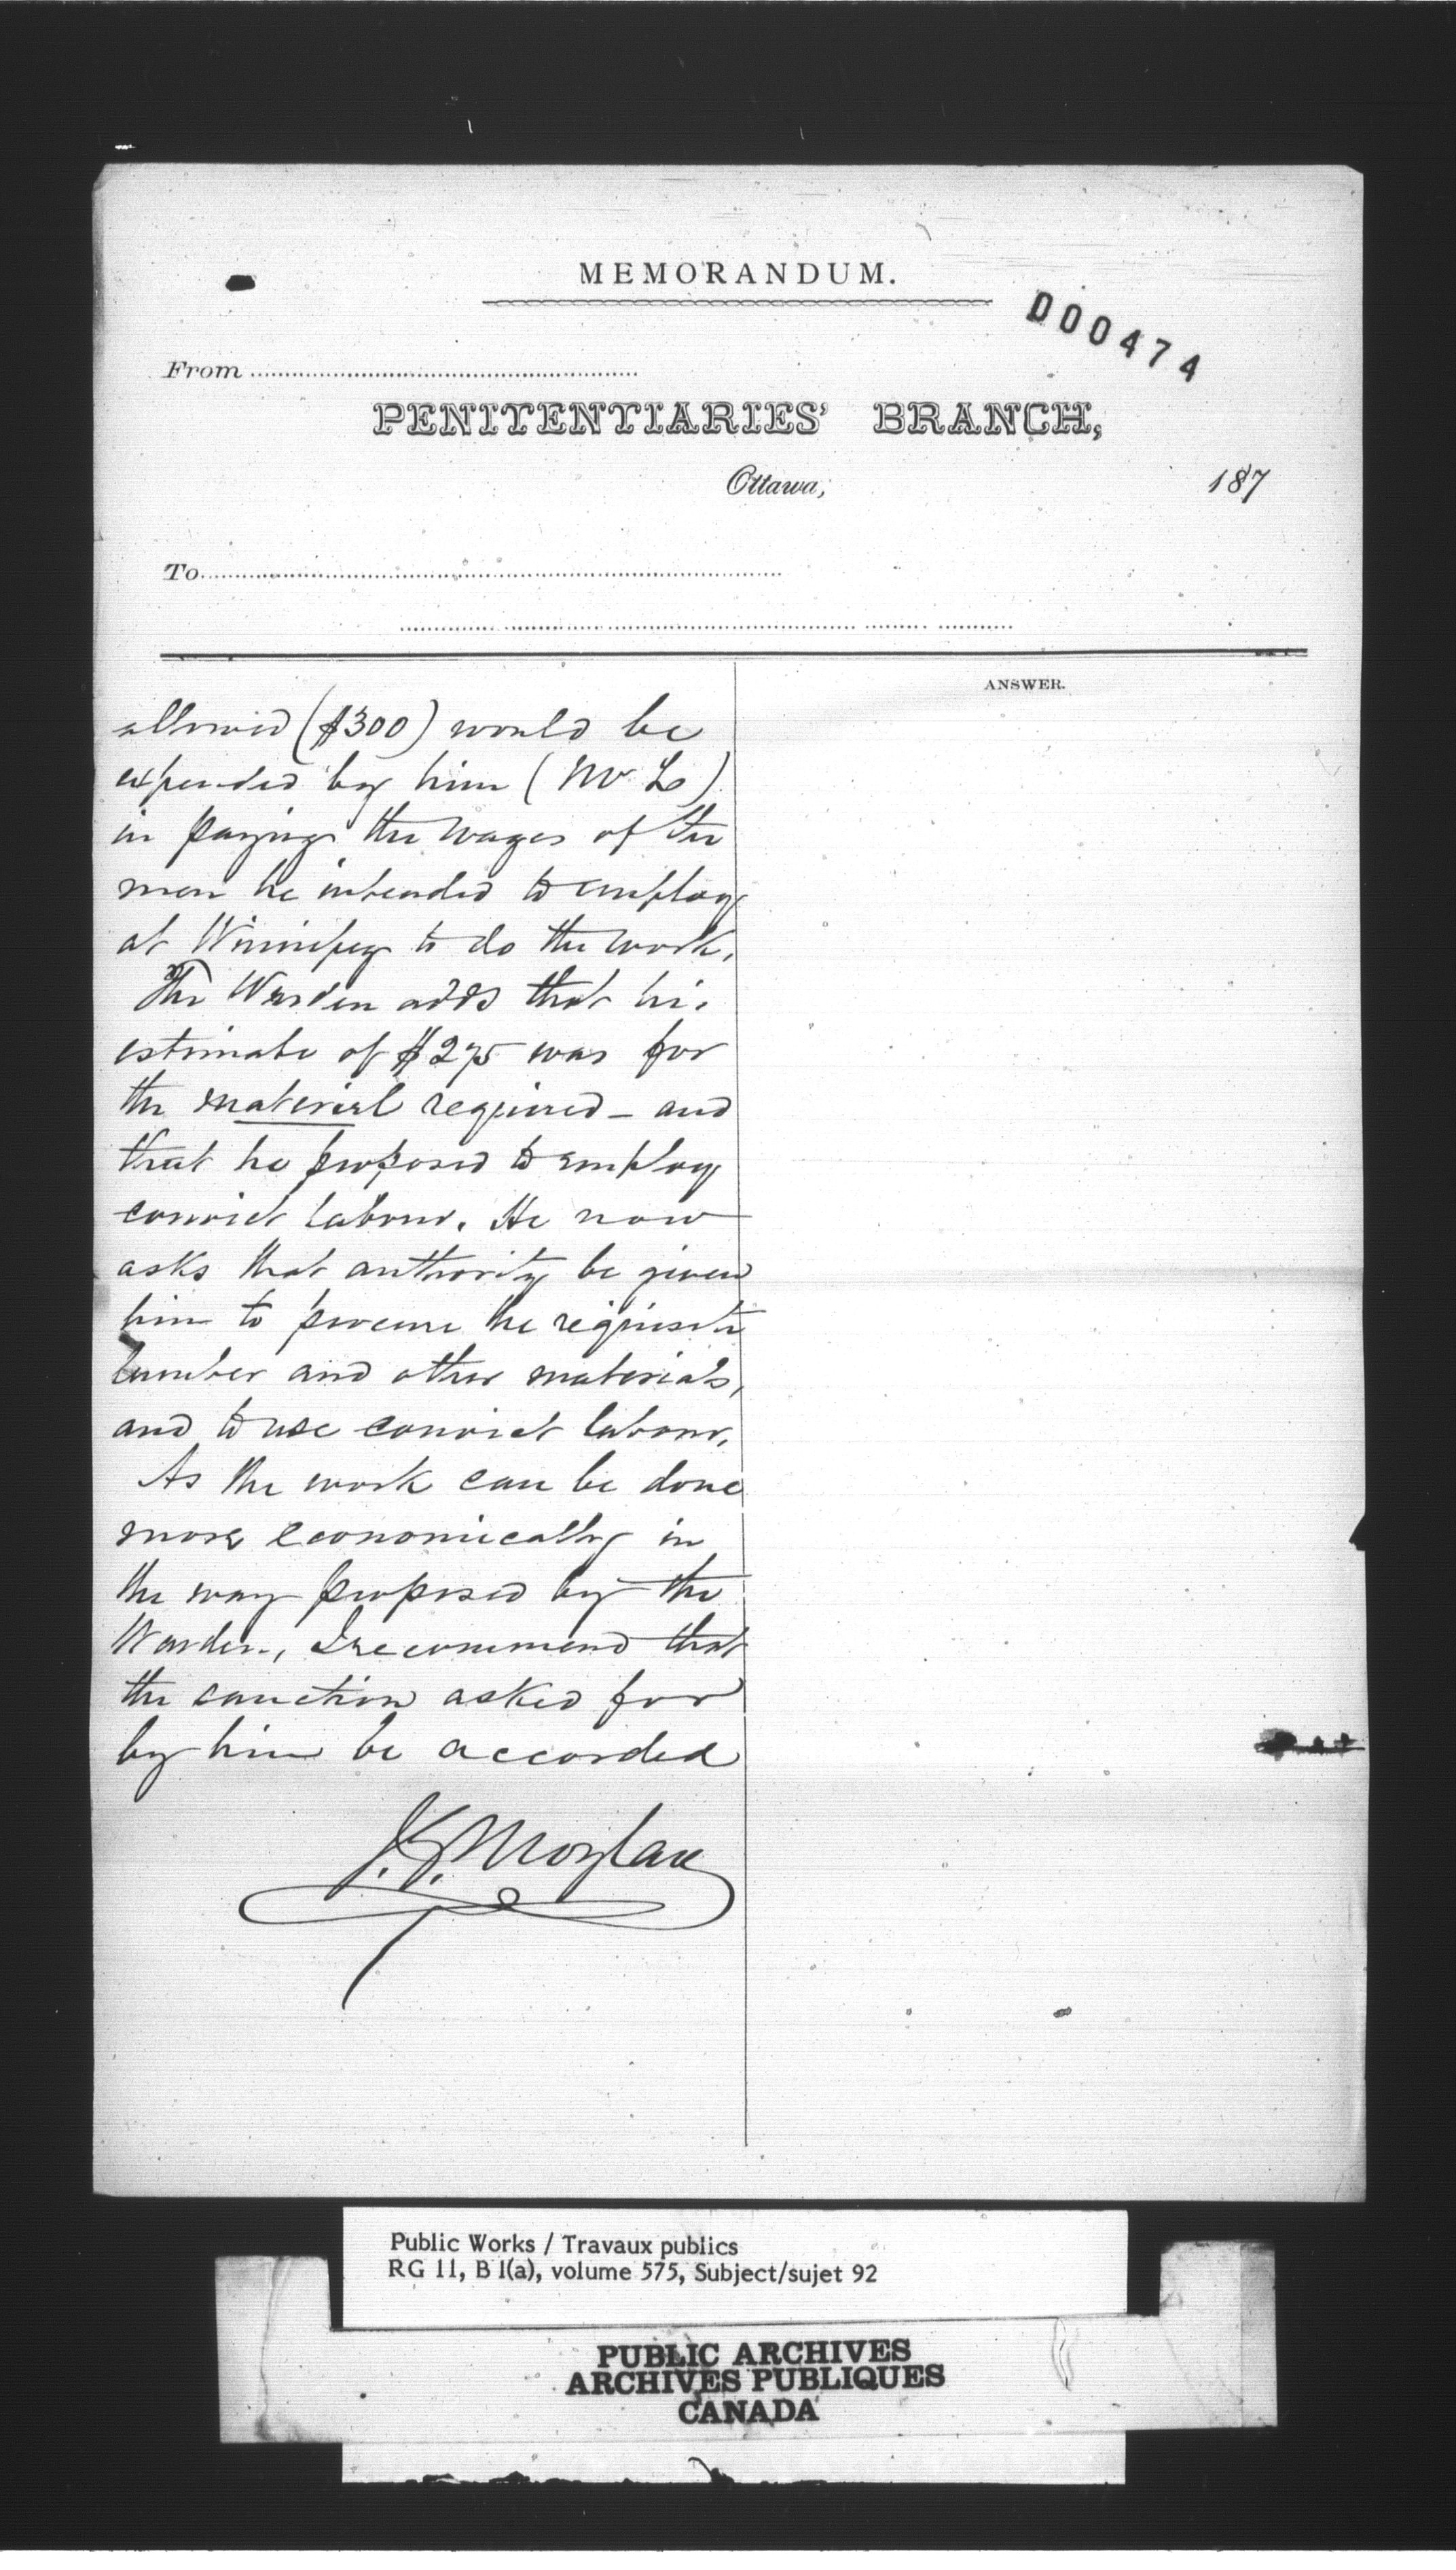 MEMORANDUM.
D00474
From
PENITENTIARIES' BRANCH,
Ottawa, 187
To
ANSWER.
allowed ($300) would be
expended by him (Mr L)
in paying the wages of the
men he intended to employ
at Winnipeg to do the work.
The Warden adds that his
estimate of $275 was for
the material required – and
that he proposed to employ
convict labour. He now
asks that authority be given
him to procure the requisite
lumber and other materials,
and to use convict labour.
As the work can be done
more economically in
the way proposed by the
Warden, I recommend that
the sanction asked for
by him be accorded
J.G. Moylan
Public Works / Travaux publics
RG 11, B 1(a), volume 575, Subject/sujet 92
PUBLIC ARCHIVES
ARCHIVES PUBLIQUES
CANADA